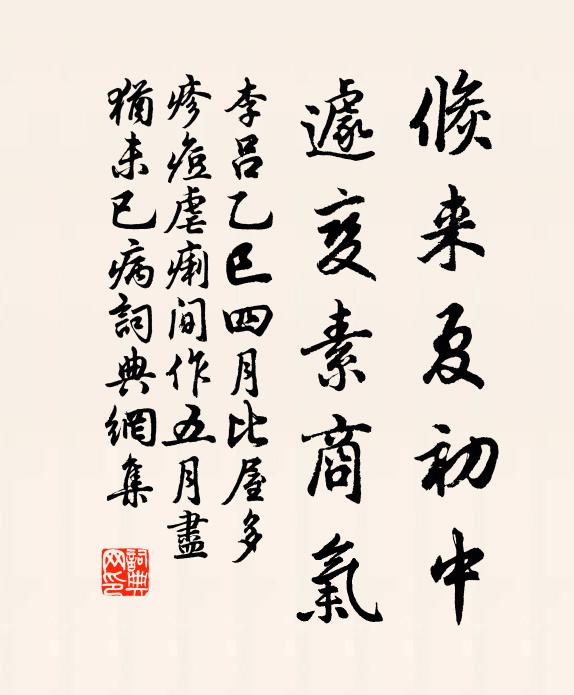 倏来夏初中
遽变素商氣
李吕乙巳四月比屋多
疹痘虐痢间作五月盡
猶未已病詞典網集
詞典网印